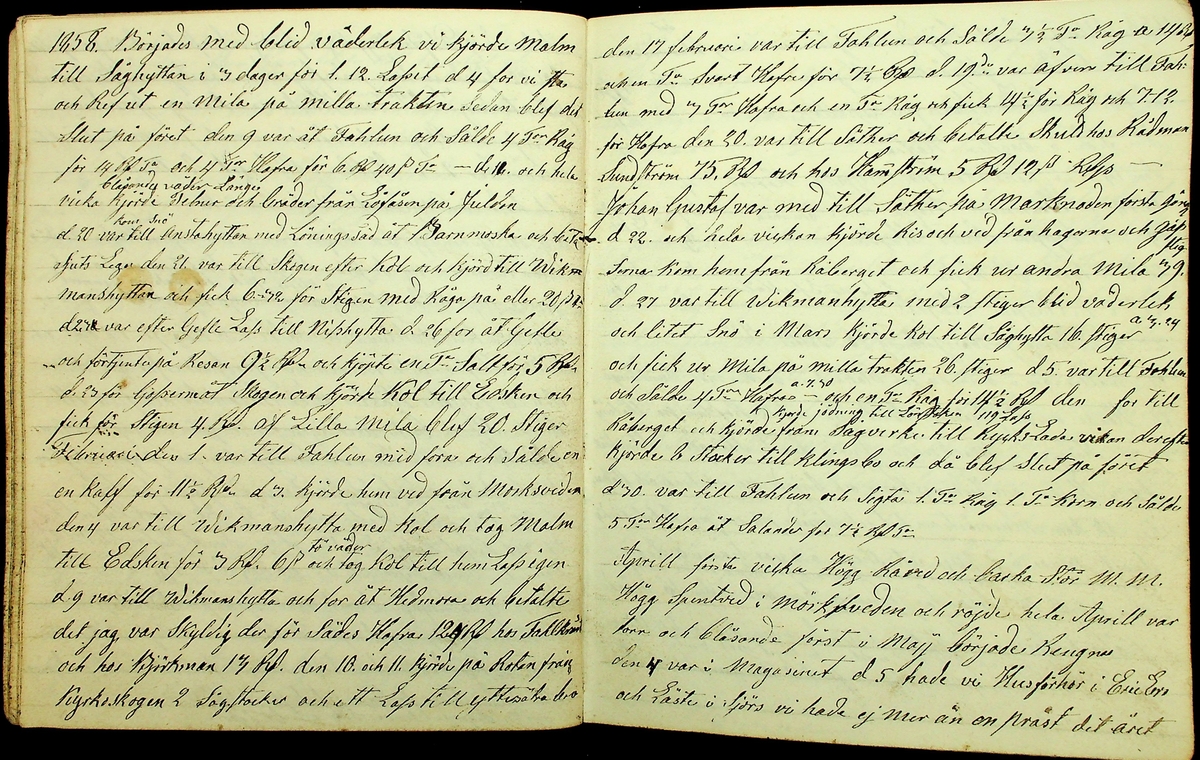 1858. Börjades med blid väderlek vi kjörde Malm
till Säghyttan i 3 dager för 1.12. Lasset d 4 for vi
och Ref ut en Mila på milla trakten Sedan blef det
Slut på föret den 9 var åt Fahlun och Sålde 4 Tor Råg
för 14 Rd Tn och 4 Tor Hafra för 6. Rd 40 β Tn — d. 11. och hela
blågonig väder Länge
vicka kjörde Stolpar och bräder från Löfåsen på Fjelden
kom Snö
d. 20 var till Knstahyttan med Löningssäd åt Barnmoska och
skjuts Lega den 21. var till Skogen efter kol och kjörd till Wikm
manshyttan och fick 6-32 för Stigen med Råga på eller 20
d 23 var efter Gefle Lass till Nisshytta d 26 for åt Gefle
och förtjente på Resan 9½ Rd och kjöpte en Tn Salt för 5 Rd
d. 23 för Skogen och kjörde Kol till Edsken och
fick för Stigen 4 Rd. af Lilla Mila blef 20. Stiger
Februari den 1. var till Fahlun med foror och Sålde en
en Kalf för 11½ Rd. d 3. kjörde hem ved från Morksveden
den 4 var till Wikmanshytta med kol och tog Malm
till Edsken för 3 Rd. 6β och tog kol till hem Lass igen
tö väder
d 9 var till Wikmanshytta och for åt Hedmora och betalte
det jag var Skyldig der för Sädes Hafra 124 Rd hos
och hos Björkman 13 Rd. den 10. och 11. kjörde på Roten från
Kyrkoskogen 2 Sågstocker och ett Lass till yttersätra bro
den 17 februari var till Fahlun och Sålde 3½ Tn Råg a 14
och en Tn Svart Hafre för 7½ Rd d. 19 var äfven till Fah-
lun med 3 Tor Hafra och en Tn Råg och fick 14½ för Råg och 7.12
för Hafra den 20. var till Säther och betalte Skuld hos Rådman
Sundström 75. Rd och hos Hamström 5 Rd 12β Rgs —
Johan Gustaf var med till Säther på Marknoden första gång
d 22. och hela vickan kjörde kis och ved från hagarna och
kom hem från Råberget och fick ur andra Mila 39
stig
d. 27 var till Wikmanhytta med 2 stiger blid väderlek
och litet Snö i Mars kjörde kol till Säghytta 16 stiger
a. 3. 24
och fick ur Mila på milla trakten 26. stiger d 5. var till Fahlun
och Sålde 4 Tor Hafra — och en Tn Råg för 14½ Rd den for till
a. 7. 30
kjörde gödning till 119 Lass
Råberget och kjörde fram Sågvirke till Ryckslada vikan derefter
kjörde 6 Stocker till Klingsbo och då blef Slut på föret
d 30. var till Fahlun och Sigtat 1. Tn Råg 1. Tn Korn och Sålde
5 Tor Hafra åt Salander for 7½ Rd Tn
Aprill första vicka Högg Råved och backa Stör M. M.
Högg Spintved i mörksveden och röjde hela Aprill var
torr och blåsande först i Maij började Rengna
den 4 var i Magasinet d 5 hade vi Husförhör i Eric Ers
och Läste i Sjörs vi hade ej mer än en präst det året